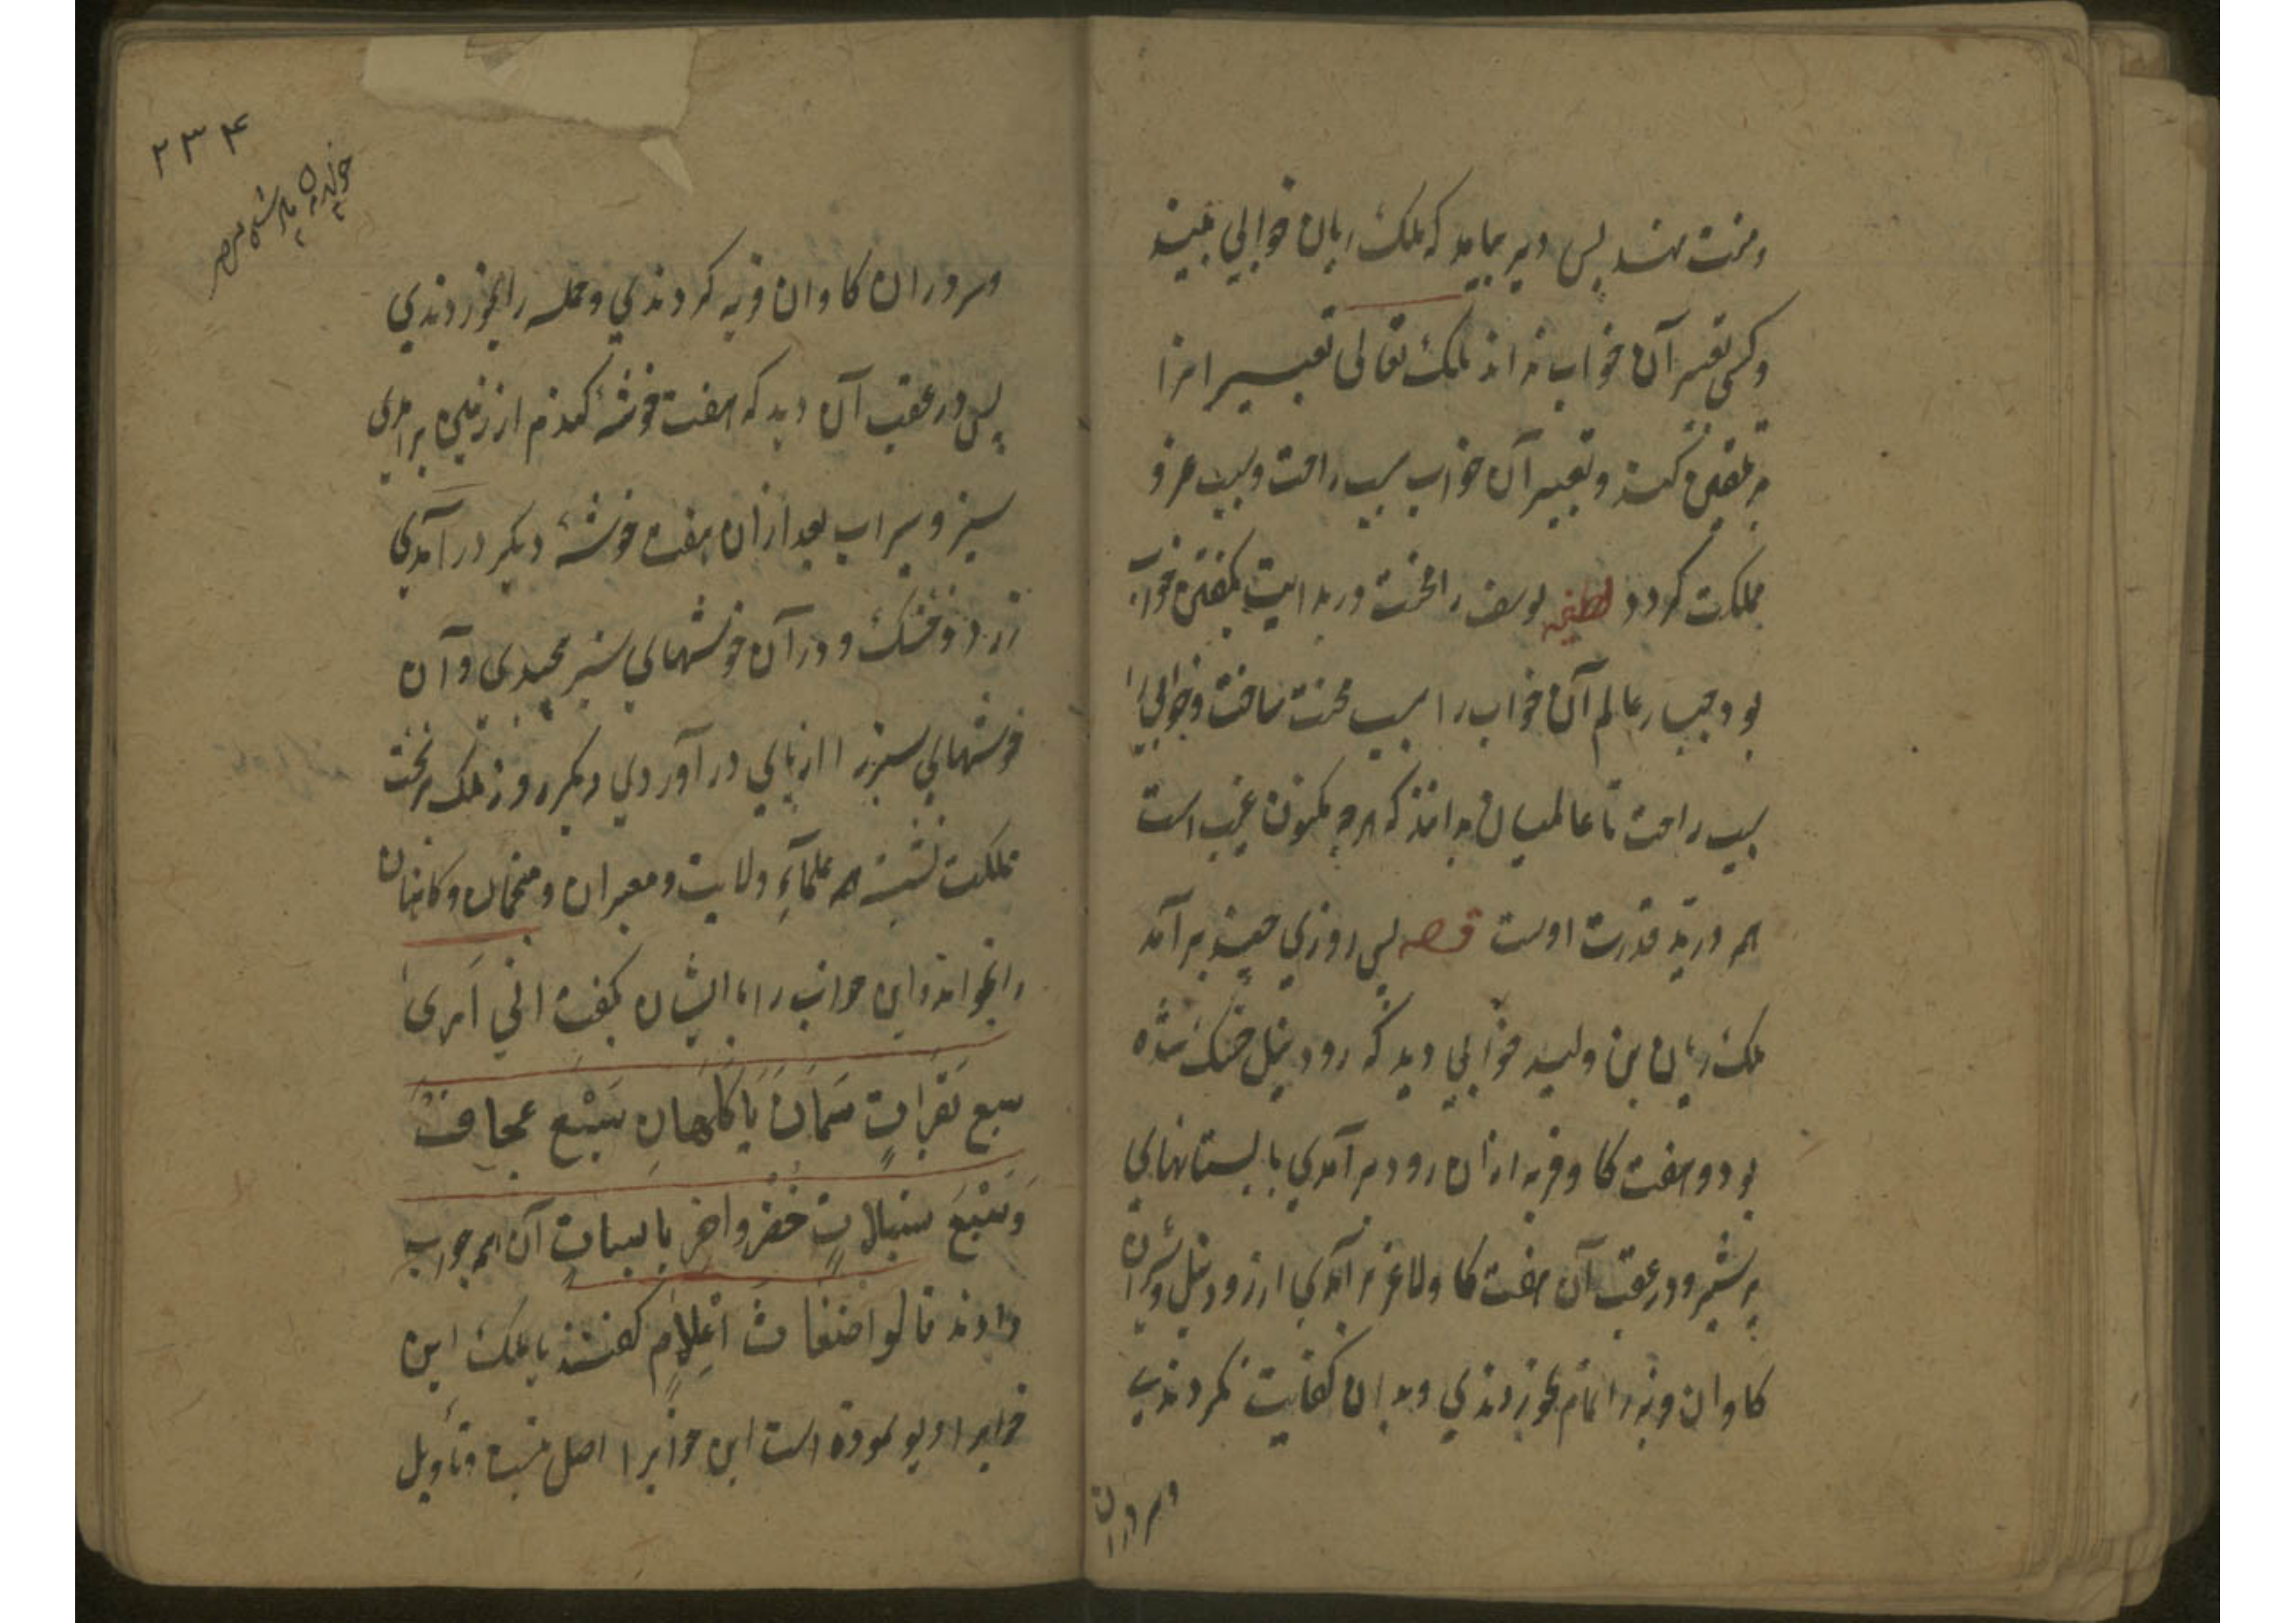 ومنت نهند پس دیر بیامد که ملک ریان خوابی ببیند
و کسی تعبیر آن خواب نداند ملک تعالی تعبیر انرا
به تلقین کند و تعبیر آن خواب سبب راحت و سبب عز و
مملکت کردد لطیفه یوسف را محنت در بدایت بکفتن خواب
بود جبار عالم آن خواب را سبب محنت ساخت و خوابی را
سبب راحت تا عالمیان بدانند که هرچه مکنون غیب است
همه در ید قدرت اوست قصه پس روزی چند برآمد
ملک ریان بن ولید خوابی دید که رود نیل خشک شده
بود و هفت کاو فربه ازان رود برآمدی با پستانهای
پرشیر و در عقب آن هفت کاو لاغر برآمدی از رود نیل و سر دران
کاوان فربه را تمام بخوردندی و بدان کفایت نکردندی
وسر دران
۲۳۴
خواب دیدن پادشاه مصر
وسر دران کاوان فربه کردندی و جمله را بخوردندی
پس در عقب آن دید که هفت خوشهٔ کندم از زمین برامدی
سبز و سیراب بعد ازان هفت خوشهٔ دیکر در آمدی
زرد و خشک و در آن خوشهای سبز پیچیدی و آن
خوشهای سبز را از پای در آوردی دیکر روز ملک بر تخت
مملکت نشسته همه علمآءِ ولایت و معبران و منجمان و کاهنان
را بخواند و این خواب را با ایشان بکفت انی اَرٰی
سبع بَقَرَاتٍ سَمَانٍ یَاکُلُهانِ سَبْع عجاف
وَسَبْعَ سنبلاتٍ خُضْرٍ واخر یابساتٍ آن همه جواب
دادند قالوا اضغاثُ اَحْلَامٍ کفتند یا ملک این
خوابرا دیو نموده است این خوابرا اصل نیست و تأویل